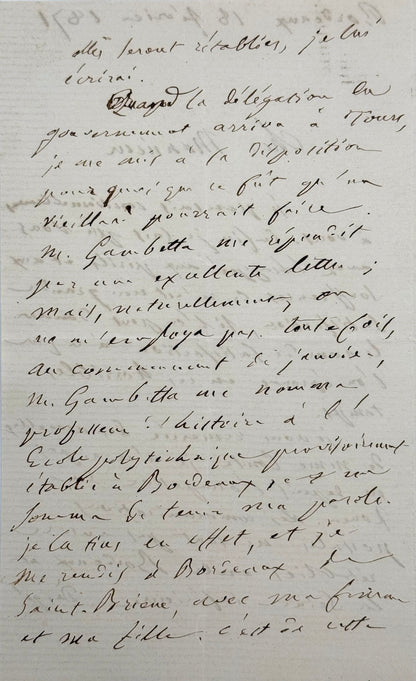 elles seront rétablies, je lui
écrirai.
Quand la délégation du
gouvernement arriva à Tours,
je me mis à la disposition
pour quoi que ce fût qu'un
vieillard pourrait faire.
M. Gambetta me répondit
par une excellente lettre ;
mais, naturellement, on
ne m'employa pas. toutefois,
au commencement de janvier,
M. Gambetta me nomma
professeur d'histoire à l'
Ecole polytechnique provisoirement
établie à Bordeaux, je
somma de tenir ma parole.
je la tins en effet, et je
me rendis à Bordeaux de
Saint-Brieuc, avec ma femme
et ma fille. c'est de cette